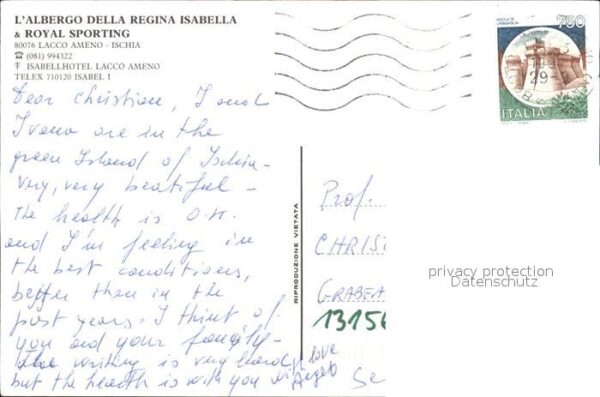 L'ALBERGO DELLA REGINA ISABELLA
& ROYAL SPORTING
80076 LACCO AMENO - ISCHIA
☎ (081) 994322
ISABELLHOTEL LACCO AMENO
TELEX 710120 ISABEL I
Dear Christian, I and
Ivana are in the
green Island of Ischia -
very, very beatiful -
The health is O.K.
and I'm feeling in
the best conditions,
better than in the
past years. I think of
you and your family -
The writing is very hard
but the health is with you with love
Angelo
RIPRODUZIONE VIETATA
750
29
ITALIA
Prof.
CHRIS
GRABEA
13156
privacy protection
Datenschutz
Se